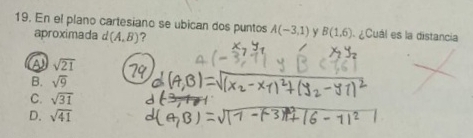 19. En el plano cartesiano se ubican dos puntos A(-3,1) y B(1,6). ¿Cuál es la distancia
aproximada d(A,B)?
x₁ y₁ x₂ y₂
A(-3,1) y B (1,6)
A. √21
B. √9
C. √31
D. √41
d(A,B)=√(x₂-x₁)²+(y₂-y₁)²
d(A,B)=√(1-(-3))²+(6-1)²